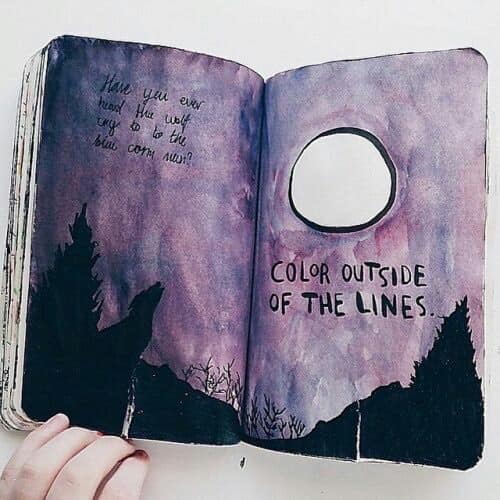 Have you ever
heard the wolf
cry to to the
blue corn moon?
COLOR OUTSIDE
OF THE LINES.